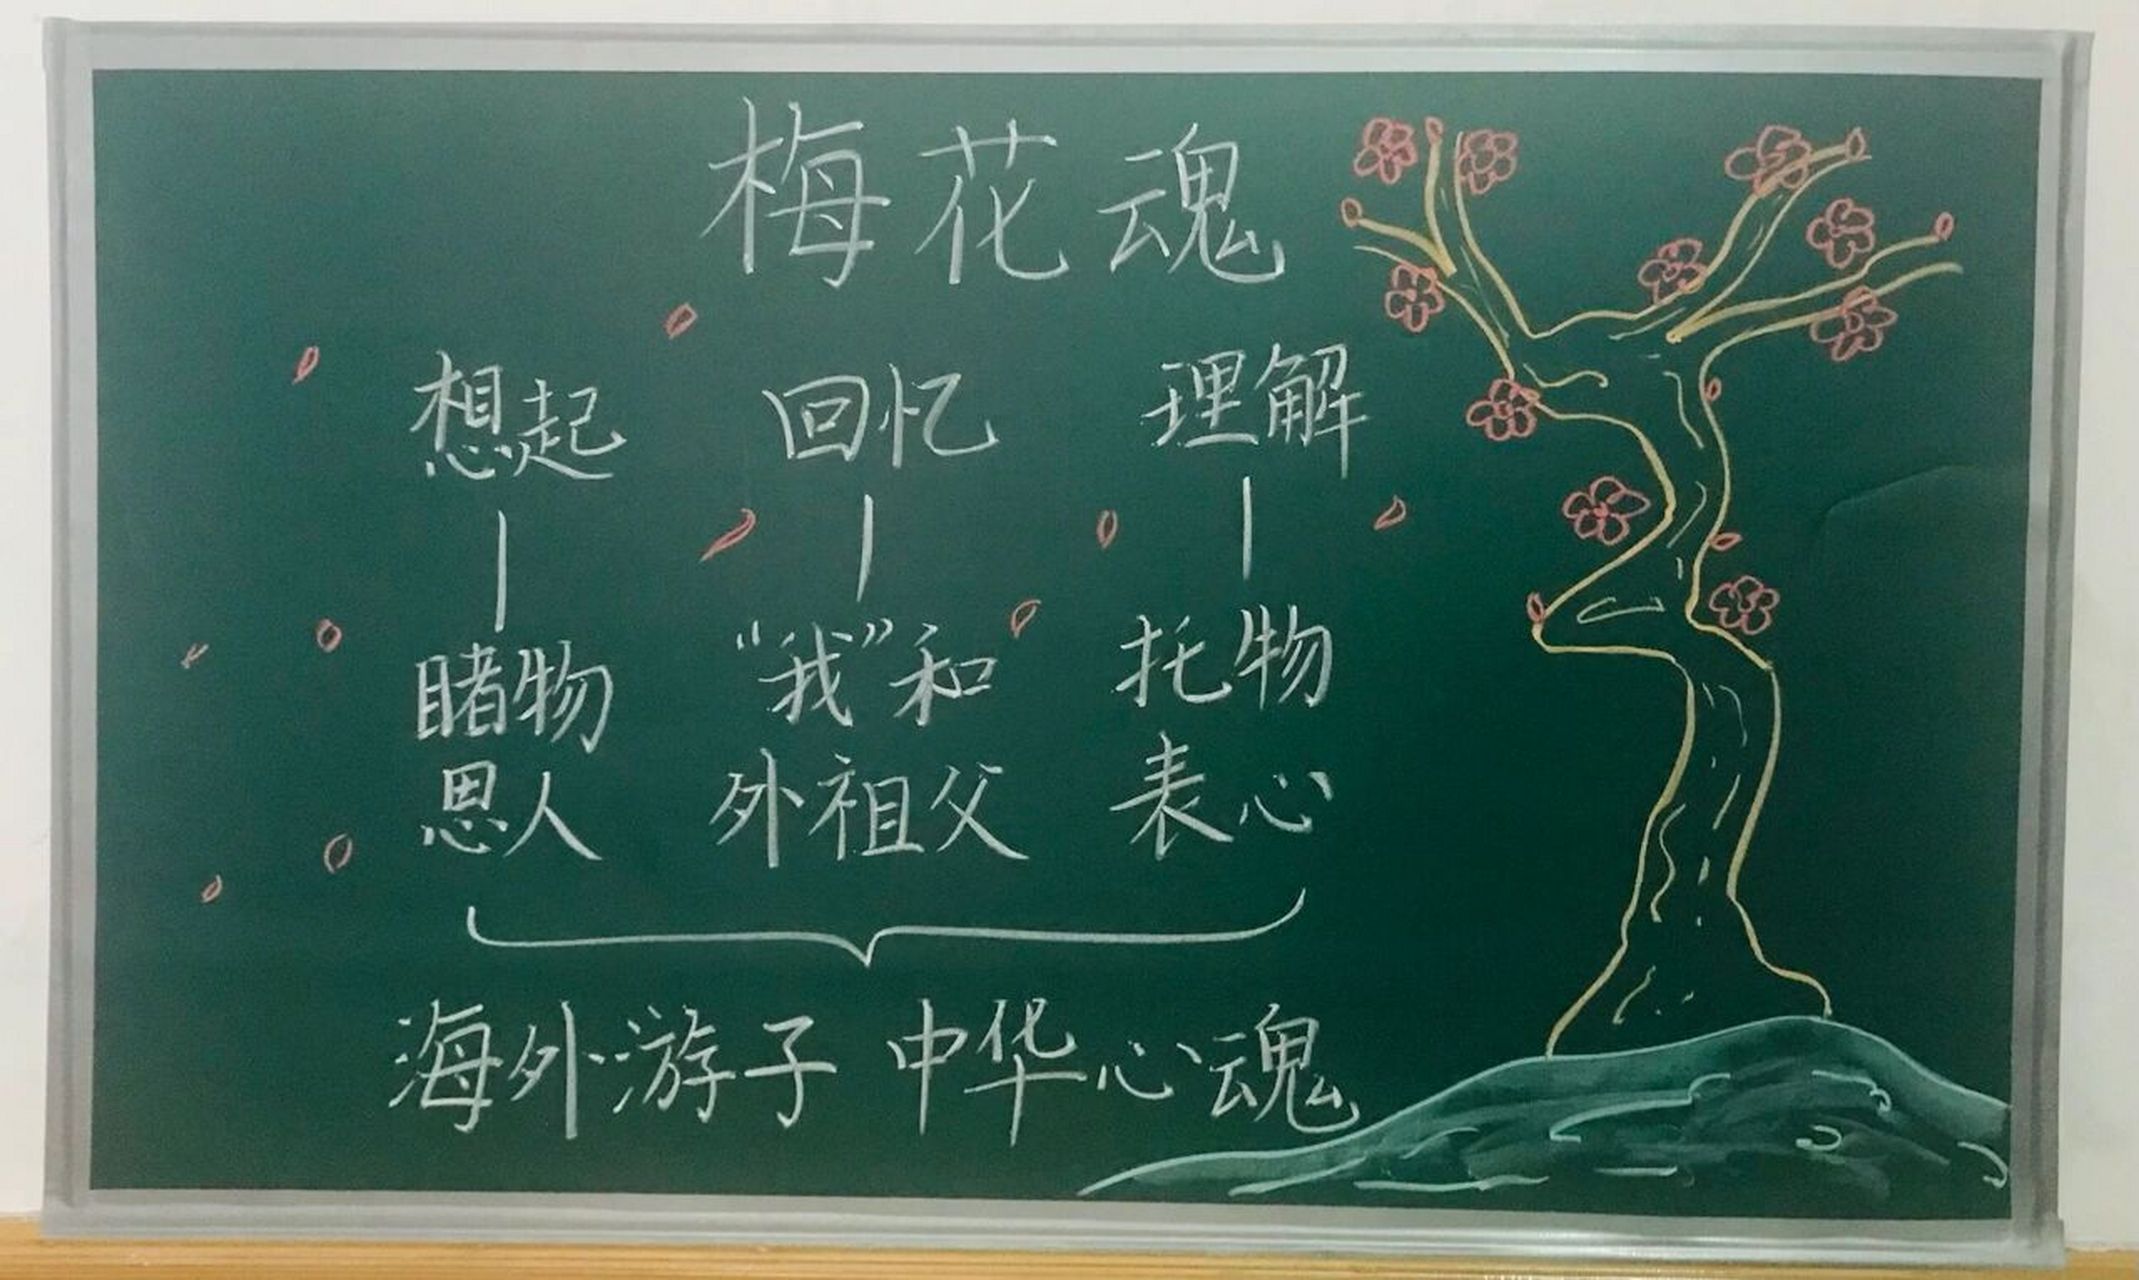 梅花魂
想起 回忆 理解
睹物 “我”和 托物
思人 外祖父 表心
海外游子 中华心魂